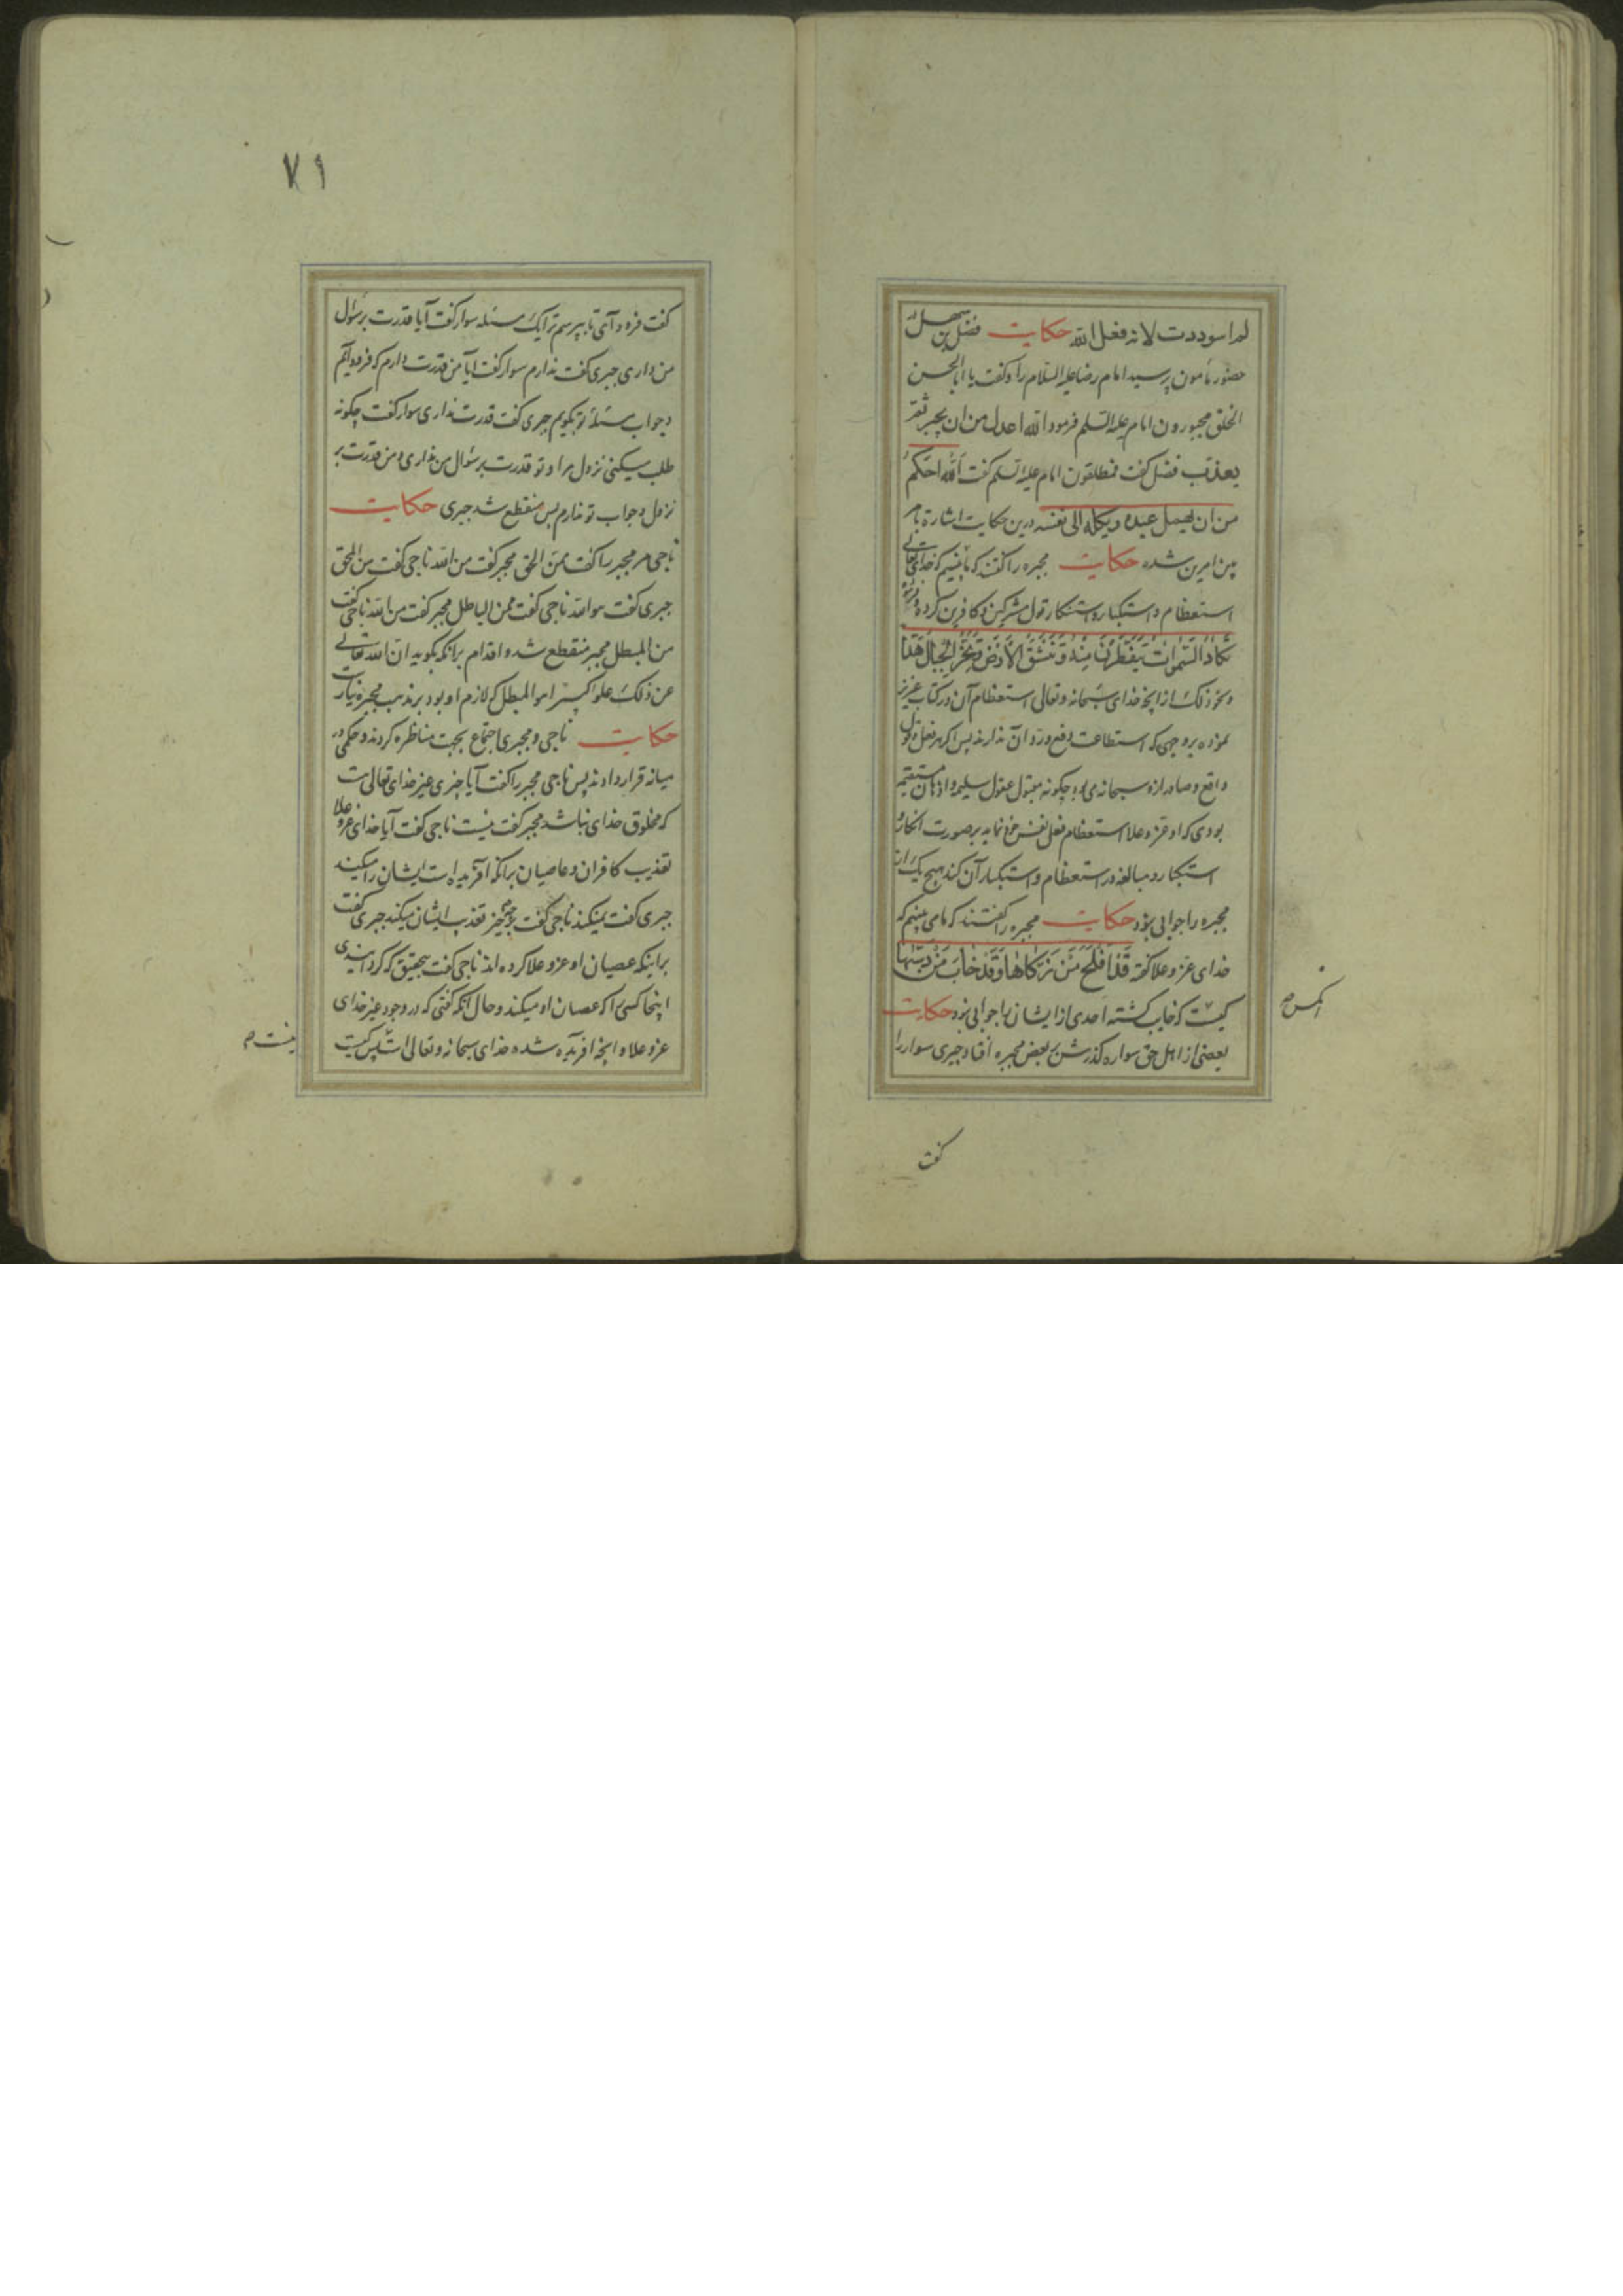 لم اسوددت لانه فعل الله حکایت فضل بن سهل در
حضور مأمون پرسید امام رضا علیه السلام را و گفت یا ابا الحسن
الخلق مجبورون امام علیه السلم فرمود الله اعدل من ان یجبر ثم
یعذب فضل گفت فمطلقون امام علیه السلم گفت الله احکم
من ان یهمل عبده و یکله الی نفسه درین حکایت اشارة بامر
بین امرین شده حکایت مجبره را گفتند که ما می‌بینیم که خدای تعالی
استعظام و استکبار و استنکار قول مشرکین و کافرین کرده و فرموده
تکاد السموات یتفطرن منه و تنشق الارض و تخر الجبال هدا
و نحو ذلک از آنچه خدای سبحانه و تعالی استعظام آن در کتاب عزیز
نموده بر وجهی که استطاعت دفع و رد آن ندارند پس اگر هر فعل و قول
واقع و صادر از او سبحانه می‌بود چگونه مقبول عقول سلیمه و اذهان مستقیم
بودی که او عز و علا استعظام فعل نفس خود نماید بر صورت انکار و
استکبار و مبالغه در استعظام و استکبار آن کند هیچ یک از
مجبره را جوابی نبود حکایت مجبره را گفتند که ما می بینیم که
خدای عز و علا گفته قد افلح من زکاها و قد خاب من دسها
کیست که خایب گشته احدی از ایشان را جوابی نبود حکایت
بعضی از اهل حق سواره گذرش بر بعض مجبره افتاد جبری سوار را
گفت
۷۱
گفت فرود آی تا بپرسم ترا یک مسئله سوار گفت آیا قدرت بر سؤال
من داری جبری گفت ندارم سوار گفت آیا من قدرت دارم که فرود آیم
و جواب مسئله تو بگویم جبری گفت قدرت نداری سوار گفت چگونه
طلب میکنی نزول مرا و تو قدرت بر سؤال من نداری و من قدرت بر
نزول و جواب تو ندارم پس منقطع شد جبری حکایت
ناجی مر مجبر را گفت ممن الحق مجبر گفت من الله ناجی گفت من المحق
جبری گفت هو الله ناجی گفت ممن الباطل مجبر گفت من الله ناجی گفت
من المبطل مجبر منقطع شد و اقدام بر آنکه بگوید ان الله تعالی
عن ذلک علوا کبیرا هو المبطل که لازم او بود بر مذهب مجبره نیارست
حکایت ناجی و مجبری اجتماع بجهت مناظره کردند و حکمی در
میانه قرار دادند پس ناجی مجبر را گفت آیا چیزی غیر خدای تعالی هست
که مخلوق خدای نباشد مجبر گفت نیست ناجی گفت آیا خدای عز و علا
تعذیب کافران و عاصیان بر آنکه آفریده است ایشان را میکند
جبری گفت نمیکند ناجی گفت بر چه چیز تعذیب ایشان میکند جبری گفت
بر اینکه عصیان او عز و علا کرده اند ناجی گفت بتحقیق که گردانیدی
اینجا کسی را که عصیان او میکند و حال آنکه گفتی که در وجود غیر خدای
عز و علا و آنچه آفریده شده خدای سبحانه و تعالی است پس کیست
نیست م